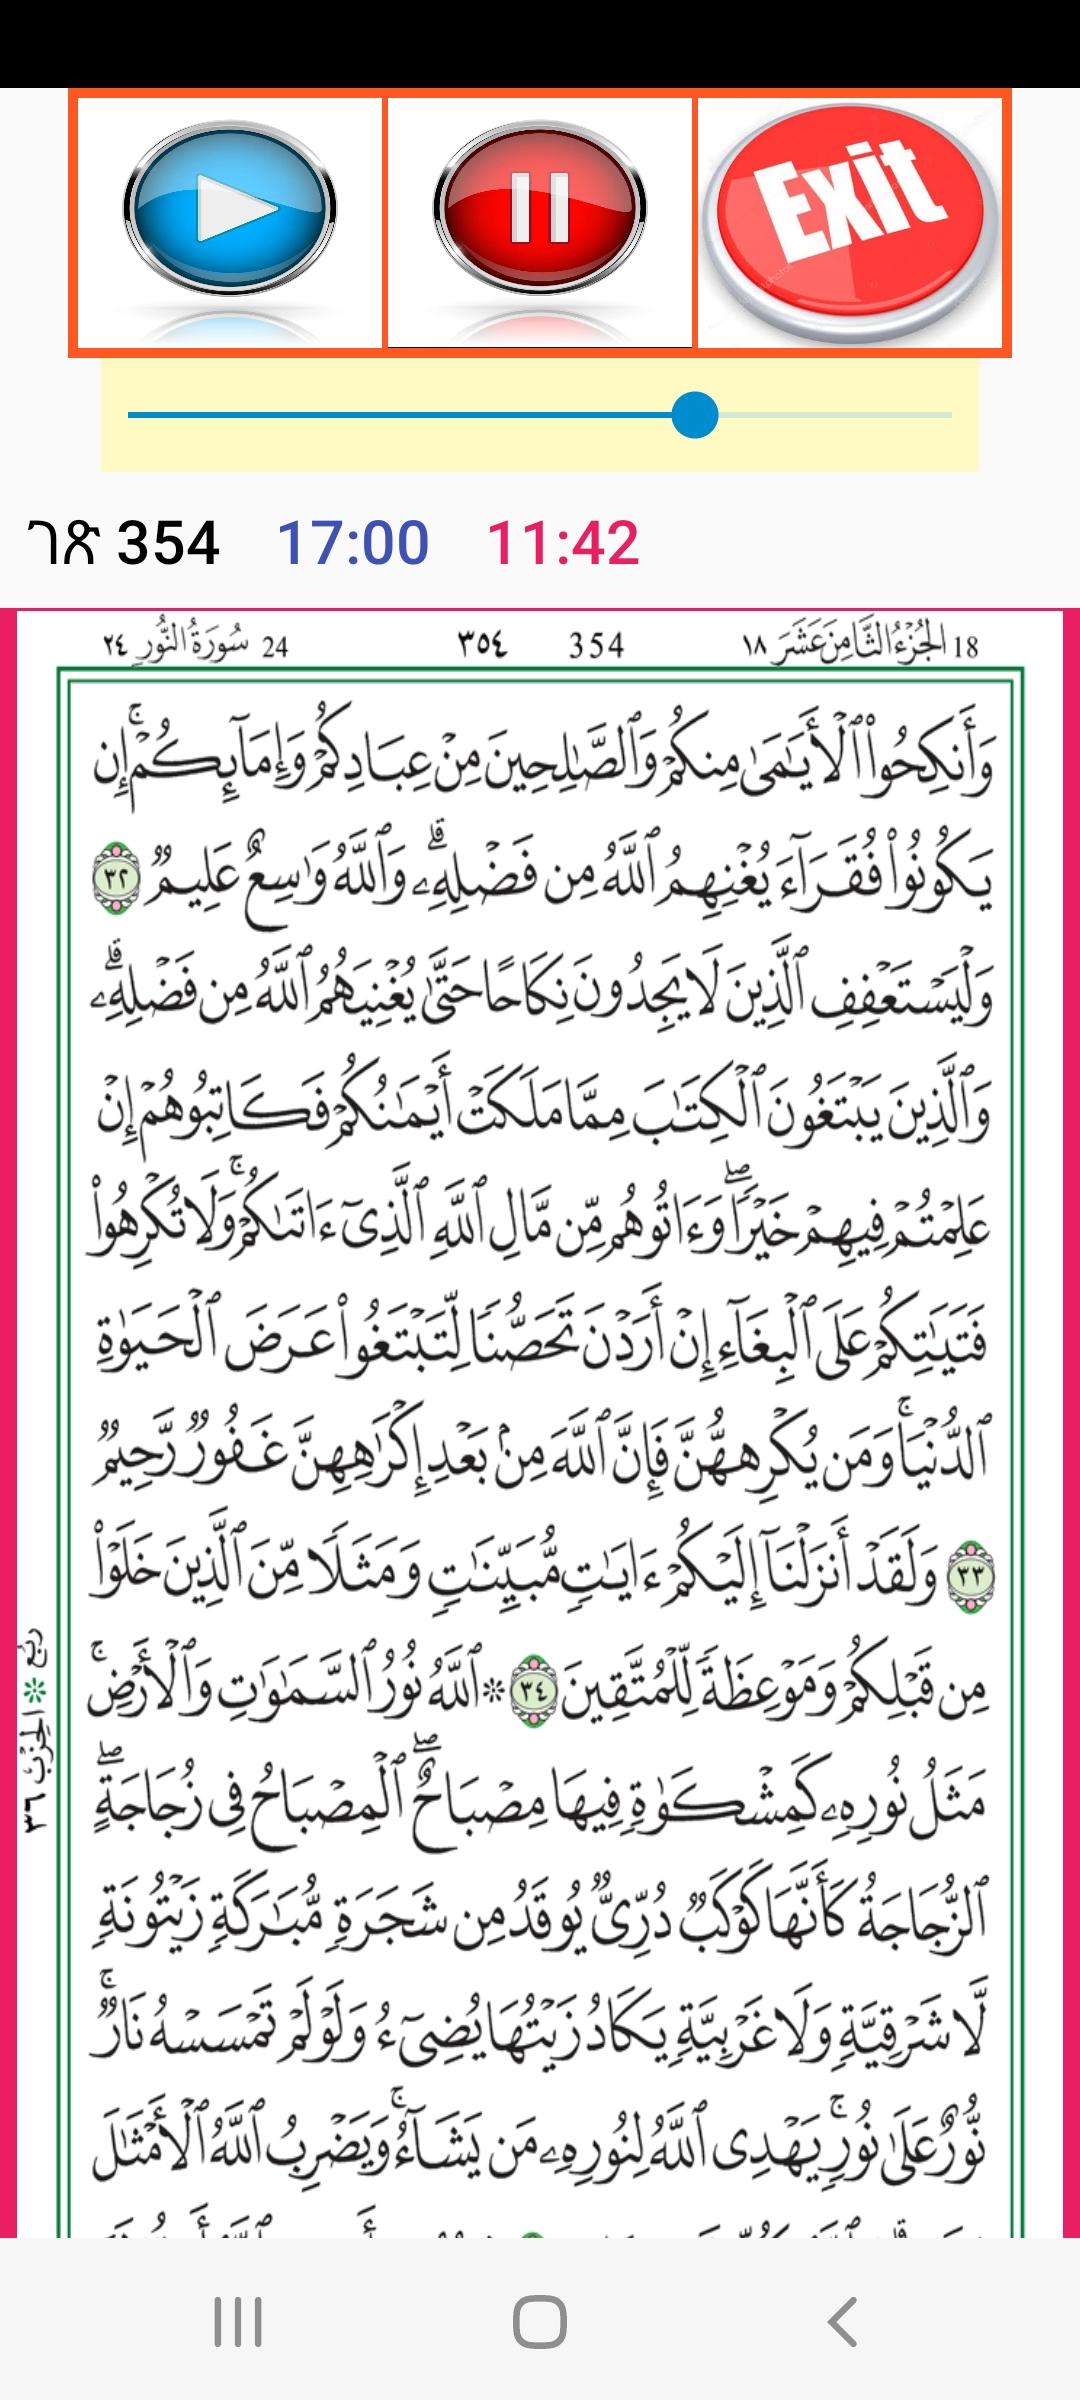 Exit
ገጽ 354 17:00 11:42
18 الجُزْءُ الثَّامِنَ عَشَرَ ١٨ 354 ٣٥٤ 24 سُورَةُ النُّورِ ٢٤
وَأَنكِحُوا۟ ٱلْأَيَـٰمَىٰ مِنكُمْ وَٱلصَّـٰلِحِينَ مِنْ عِبَادِكُمْ وَإِمَآئِكُمْ ۚ إِن
يَكُونُوا۟ فُقَرَآءَ يُغْنِهِمُ ٱللَّهُ مِن فَضْلِهِۦ ۗ وَٱللَّهُ وَٰسِعٌ عَلِيمٌ ٣٢
وَلْيَسْتَعْفِفِ ٱلَّذِينَ لَا يَجِدُونَ نِكَاحًا حَتَّىٰ يُغْنِيَهُمُ ٱللَّهُ مِن فَضْلِهِۦ ۗ
وَٱلَّذِينَ يَبْتَغُونَ ٱلْكِتَـٰبَ مِمَّا مَلَكَتْ أَيْمَـٰنُكُمْ فَكَاتِبُوهُمْ إِنْ
عَلِمْتُمْ فِيهِمْ خَيْرًا ۖ وَءَاتُوهُم مِّن مَّالِ ٱللَّهِ ٱلَّذِىٓ ءَاتَىٰكُمْ ۚ وَلَا تُكْرِهُوا۟
فَتَيَـٰتِكُمْ عَلَى ٱلْبِغَآءِ إِنْ أَرَدْنَ تَحَصُّنًا لِّتَبْتَغُوا۟ عَرَضَ ٱلْحَيَوٰةِ
ٱلدُّنْيَا ۚ وَمَن يُكْرِههُّنَّ فَإِنَّ ٱللَّهَ مِنۢ بَعْدِ إِكْرَٰهِهِنَّ غَفُورٌ رَّحِيمٌ
٣٣ وَلَقَدْ أَنزَلْنَآ إِلَيْكُمْ ءَايَـٰتٍ مُّبَيِّنَـٰتٍ وَمَثَلًا مِّنَ ٱلَّذِينَ خَلَوْا۟
مِن قَبْلِكُمْ وَمَوْعِظَةً لِّلْمُتَّقِينَ ٣٤ * ٱللَّهُ نُورُ ٱلسَّمَـٰوَٰتِ وَٱلْأَرْضِ ۚ
رُبْعٌ * الحِزْب ٣٦
مَثَلُ نُورِهِۦ كَمِشْكَوٰةٍ فِيهَا مِصْبَاحٌ ۖ ٱلْمِصْبَاحُ فِى زُجَاجَةٍ ۖ
ٱلزُّجَاجَةُ كَأَنَّهَا كَوْكَبٌ دُرِّىٌّ يُوقَدُ مِن شَجَرَةٍ مُّبَـٰرَكَةٍ زَيْتُونَةٍ
لَّا شَرْقِيَّةٍ وَلَا غَرْبِيَّةٍ يَكَادُ زَيْتُهَا يُضِىٓءُ وَلَوْ لَمْ تَمْسَسْهُ نَارٌ ۚ
نُّورٌ عَلَىٰ نُورٍ ۗ يَهْدِى ٱللَّهُ لِنُورِهِۦ مَن يَشَآءُ ۚ وَيَضْرِبُ ٱللَّهُ ٱلْأَمْثَـٰلَ